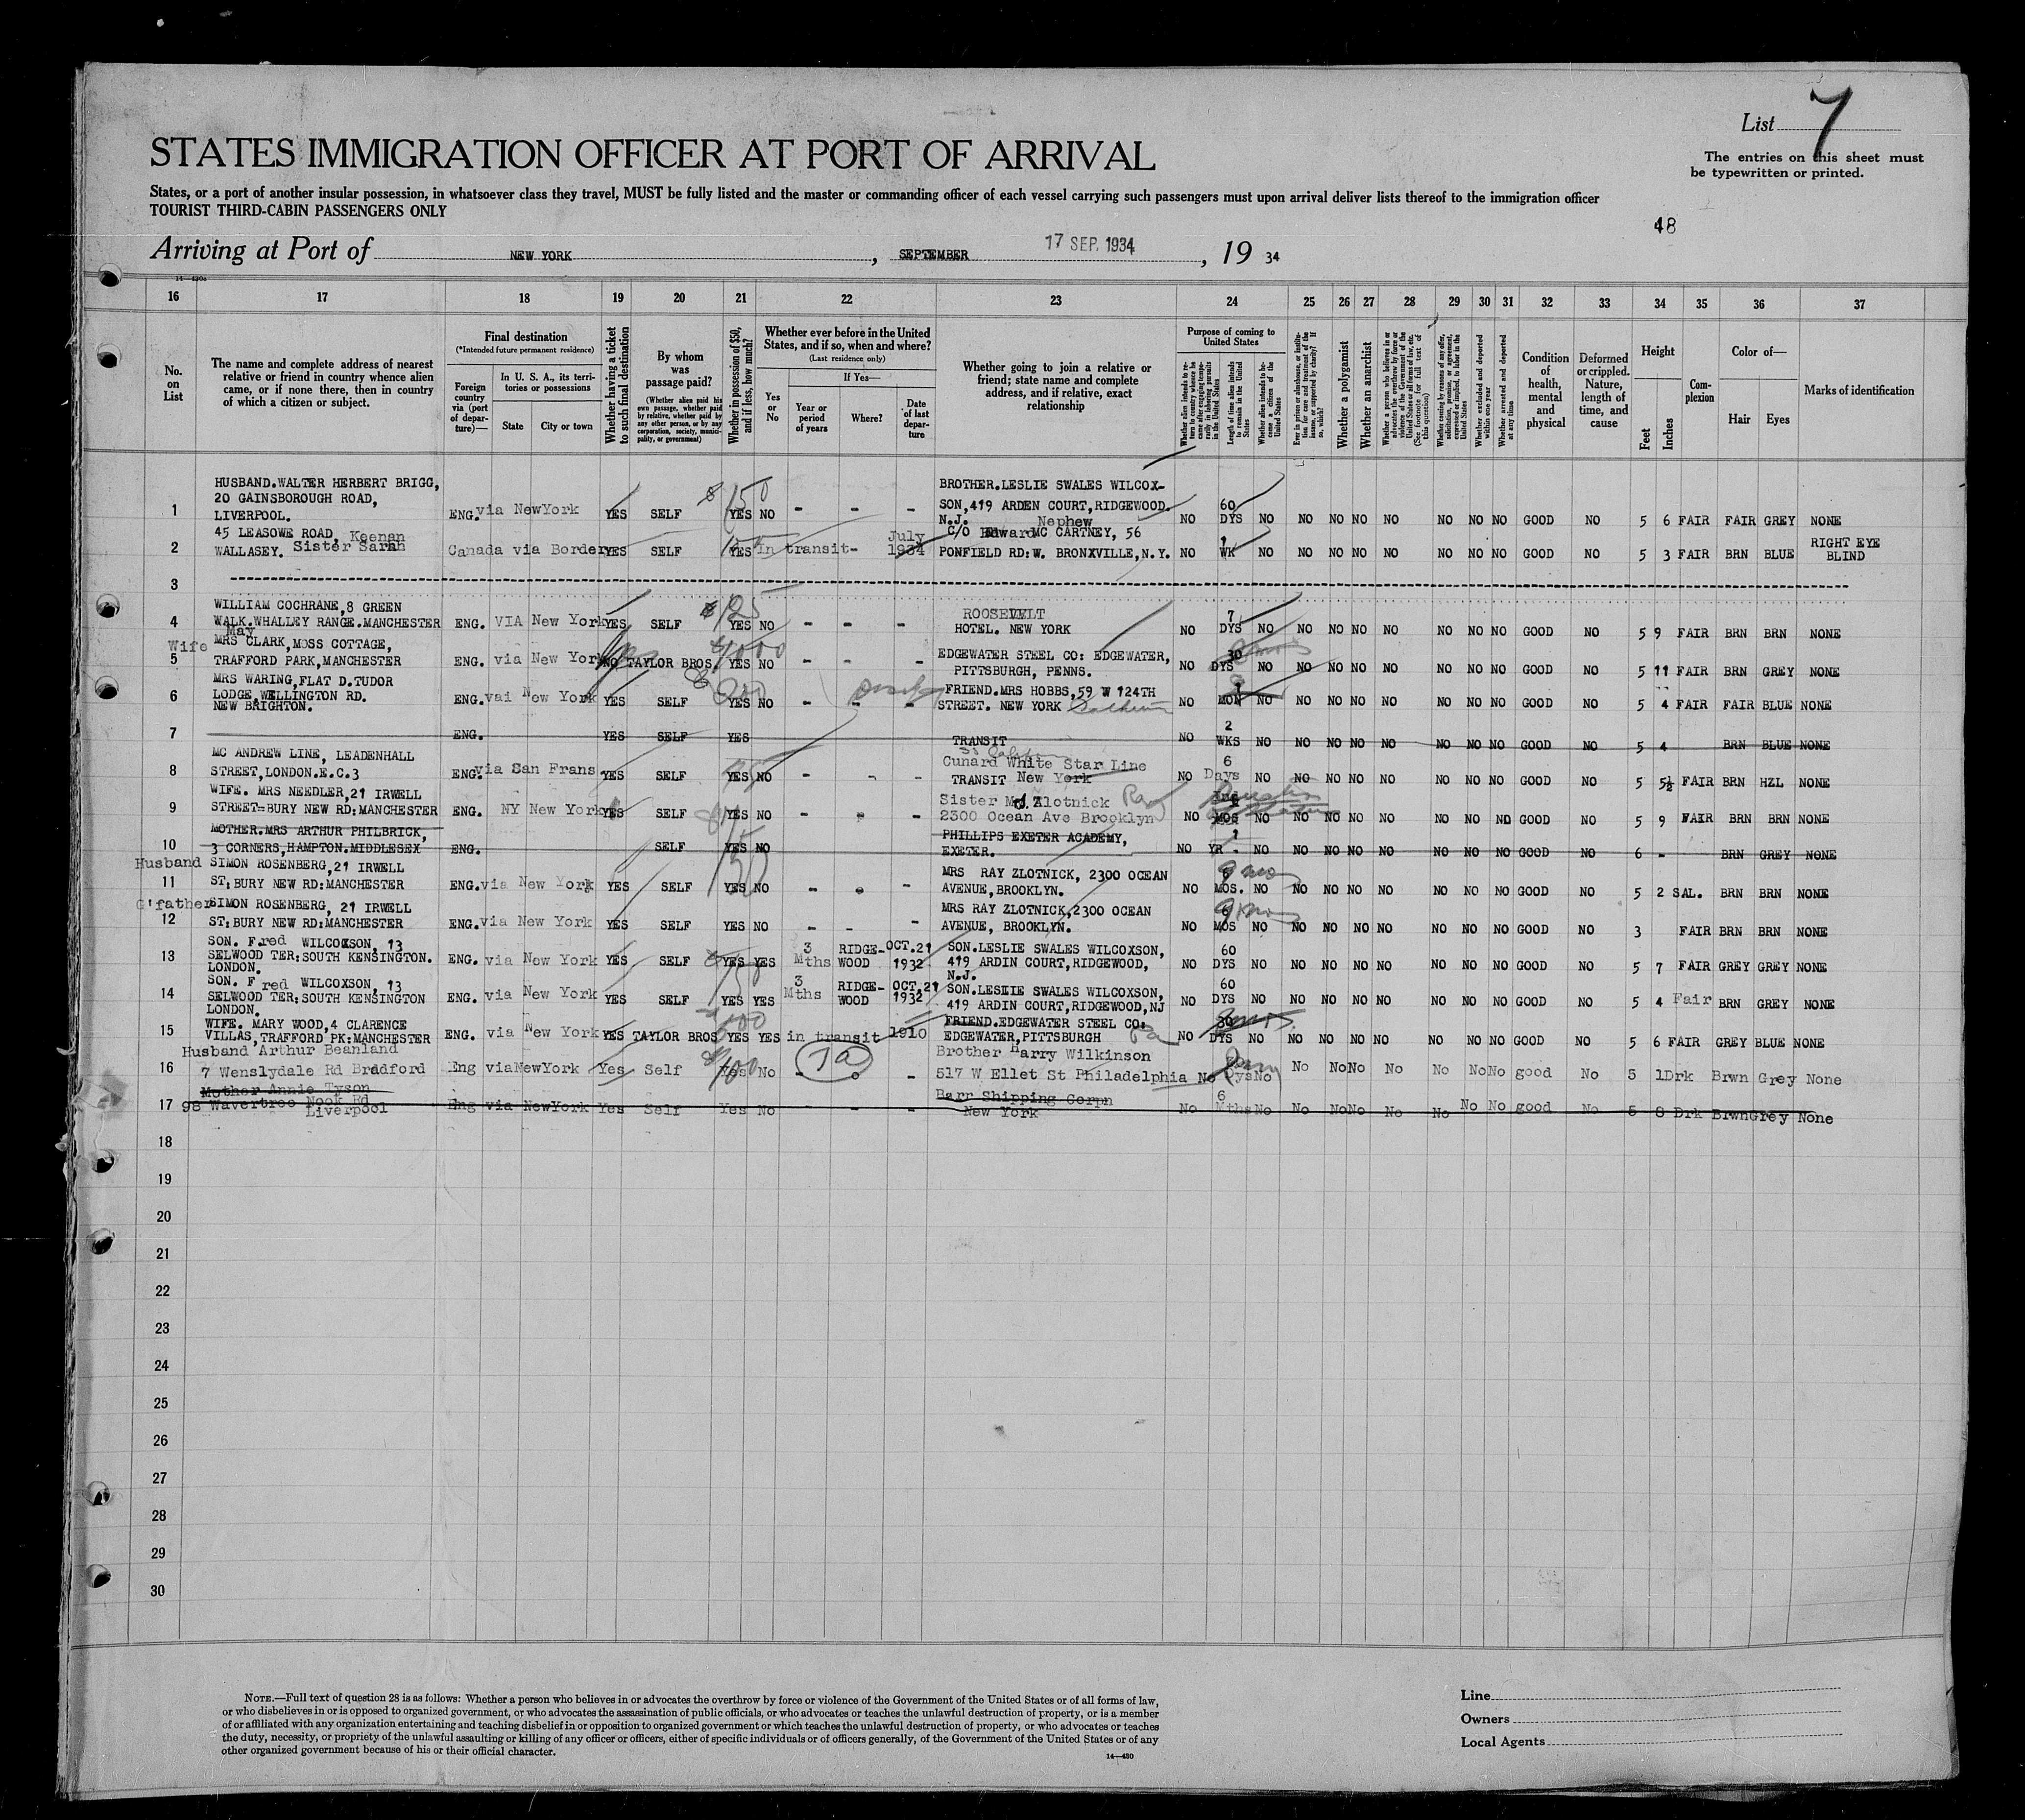 List 7
STATES IMMIGRATION OFFICER AT PORT OF ARRIVAL
The entries on this sheet must
be typewritten or printed.
States, or a port of another insular possession, in whatsoever class they travel, MUST be fully listed and the master or commanding officer of each vessel carrying such passengers must upon arrival deliver lists thereof to the immigration officer
TOURIST THIRD-CABIN PASSENGERS ONLY
48
Arriving at Port of NEW YORK, SEPTEMBER 17 SEP. 1934, 19 34
16 17 18 19 20 21 22 23 24 25 26 27 28 29 30 31 32 33 34 35 36 37
No. on List
The name and complete address of nearest relative or friend in country whence alien came, or if none there, then in country of which a citizen or subject.
Final destination
(*Intended future permanent residence)
Foreign country via (port of departure)—
In U. S. A., its territories or possessions
State
City or town
Whether having a ticket to such final destination
By whom was passage paid?
(Whether alien paid his own passage, whether paid by relative, whether paid by any other person, or by any corporation, society, municipality, or government)
Whether in possession of $50, and if less, how much?
Whether ever before in the United States, and if so, when and where?
(Last residence only)
Yes or No
If Yes—
Year or period of years
Where?
Date of last departure
Whether going to join a relative or friend; state name and complete address, and if relative, exact relationship
Purpose of coming to United States
Whether alien intends to return to country whence he came after engaging temporarily in laboring pursuits in the United States
Length of time alien intends to remain in the United States
Whether alien intends to become a citizen of the United States
Ever in prison or almshouse, or institution for care and treatment of the insane, or supported by charity? If so, which?
Whether a polygamist
Whether an anarchist
Whether a person who believes in or advocates the overthrow by force or violence of the Government of the United States or all forms of law, etc. (See footnote for full text of this question)
Whether coming by reasons of any offer, solicitation, promise, or agreement, expressed or implied, to labor in the United States
Whether excluded and deported within one year
Whether arrested and deported at any time
Condition of health, mental and physical
Deformed or crippled. Nature, length of time, and cause
Height
Feet
Inches
Complexion
Color of—
Hair
Eyes
Marks of identification
1 HUSBAND.WALTER HERBERT BRIGG, 20 GAINSBOROUGH ROAD, LIVERPOOL. ENG. via NewYork YES SELF 150 YES NO - - - BROTHER.LESLIE SWALES WILCOXSON,419 ARDEN COURT,RIDGEWOOD. N.J. NO 60 DYS NO NO NO NO NO NO NO NO GOOD NO 5 6 FAIR FAIR GREY NONE
2 45 LEASOWE ROAD, Keenan WALLASEY. Sister Sarah Canada via Border YES SELF YES in transit- July 1934 Nephew C/O Edward MC CARTNEY, 56 PONFIELD RD: W. BRONXVILLE, N.Y. NO 1 WK NO NO NO NO NO NO NO NO GOOD NO 5 3 FAIR BRN BLUE RIGHT EYE BLIND
3
4 WILLIAM COCHRANE,8 GREEN WALK.WHALLEY RANGE.MANCHESTER ENG. VIA New York YES SELF 125 YES NO - - - ROOSEVELT HOTEL. NEW YORK NO 7 DYS NO NO NO NO NO NO NO NO GOOD NO 5 9 FAIR BRN BRN NONE
5 Wife May MRS CLARK,MOSS COTTAGE, TRAFFORD PARK,MANCHESTER ENG. via New York yes NO TAYLOR BROS. 1000 YES NO - - - EDGEWATER STEEL CO: EDGEWATER, PITTSBURGH, PENNS. NO 30 DYS NO NO NO NO NO NO NO NO GOOD NO 5 11 FAIR BRN GREY NONE
6 MRS WARING,FLAT D.TUDOR LODGE,WELLINGTON RD. NEW BRIGHTON. ENG. vai New York YES SELF 200 YES NO - - - FRIEND.MRS HOBBS,59 W 124TH STREET. NEW YORK NO 1 MON NO NO NO NO NO NO NO NO GOOD NO 5 4 FAIR FAIR BLUE NONE
7 ENG. YES SELF YES TRANSIT NO 2 WKS NO NO NO NO NO NO NO NO GOOD NO 5 4 BRN BLUE NONE
8 MC ANDREW LINE, LEADENHALL STREET,LONDON.E.C.3 ENG. via San Frans YES SELF YES NO - - - Cunard White Star Line TRANSIT New York NO 6 Days NO NO NO NO NO NO NO NO GOOD NO 5 5½ FAIR BRN HZL NONE
9 WIFE. MRS NEEDLER,21 IRWELL STREET=BURY NEW RD:MANCHESTER ENG. NY New York YES SELF YES NO - - - Sister M J Zlotnick Ray 2300 Ocean Ave Brooklyn NO MOS NO NO NO NO NO NO NO NO GOOD NO 5 9 FAIR BRN BRN NONE
10 MOTHER.MRS ARTHUR PHILBRICK, 3 CORNERS,HAMPTON.MIDDLESEX ENG. SELF YES NO PHILLIPS EXETER ACADEMY, EXETER. NO 1 YR - NO NO NO NO NO NO NO NO GOOD NO 6 - BRN GREY NONE
11 Husband SIMON ROSENBERG,21 IRWELL ST:BURY NEW RD:MANCHESTER ENG. via New York YES SELF 150 YES NO - - - MRS RAY ZLOTNICK, 2300 OCEAN AVENUE,BROOKLYN. NO 9 mos MOS. NO NO NO NO NO NO NO NO GOOD NO 5 2 SAL. BRN BRN NONE
12 G'father SIMON ROSENBERG, 21 IRWELL ST:BURY NEW RD:MANCHESTER ENG. via New York YES SELF YES NO - - - MRS RAY ZLOTNICK,2300 OCEAN AVENUE, BROOKLYN. NO 9 mos MOS NO NO NO NO NO NO NO NO GOOD NO 3 FAIR BRN BRN NONE
13 SON. Fred WILCOXSON, 13 SELWOOD TER:SOUTH KENSINGTON. LONDON. ENG. via New York YES SELF YES YES 3 Mths RIDGEWOOD OCT.21 1932 SON.LESLIE SWALES WILCOXSON, 419 ARDIN COURT,RIDGEWOOD, N.J. NO 60 DYS NO NO NO NO NO NO NO NO GOOD NO 5 7 FAIR GREY GREY NONE
14 SON. Fred WILCOXSON, 13 SELWOOD TER:SOUTH KENSINGTON LONDON. ENG. via New York YES SELF 150 YES YES 3 Mths RIDGE-WOOD OCT,21 1932 SON.LESLIE SWALES WILCOXSON, 419 ARDIN COURT,RIDGEWOOD,NJ NO 60 DYS NO NO NO NO NO NO NO NO GOOD NO 5 4 Fair BRN GREY NONE
15 WIFE. MARY WOOD,4 CLARENCE VILLAS,TRAFFORD PK:MANCHESTER ENG. via New York YES TAYLOR BROS YES YES in transit 1910 FRIEND.EDGEWATER STEEL CO: EDGEWATER,PITTSBURGH Pa NO 30 DYS NO NO NO NO NO NO NO NO GOOD NO 5 6 FAIR GREY BLUE NONE
16 Husband Arthur Beanland 7 Wenslydale Rd Bradford Eng viaNewYork Yes Self 100 Yes No - - Brother Harry Wilkinson 517 W Ellet St Philadelphia No Dys No No No No No No No No good No 5 1 Drk Brwn Grey None
17 Mother Annie Tyson 98 Wavertree Nook Rd Liverpool Eng via NewYork Yes Self Yes No - - Barr Shipping Corpn New York No 6 Mths No No No No No No No No good No 5 8 Drk Brwn Grey None
18
19
20
21
22
23
24
25
26
27
28
29
30
NOTE.—Full text of question 28 is as follows: Whether a person who believes in or advocates the overthrow by force or violence of the Government of the United States or of all forms of law,
or who disbelieves in or is opposed to organized government, or who advocates the assassination of public officials, or who advocates or teaches the unlawful destruction of property, or is a member
of or affiliated with any organization entertaining and teaching disbelief in or opposition to organized government or which teaches the unlawful destruction of property, or who advocates or teaches
the duty, necessity, or propriety of the unlawful assaulting or killing of any officer or officers, either of specific individuals or of officers generally, of the Government of the United States or of any
other organized government because of his or their official character.
14—430
Line
Owners
Local Agents